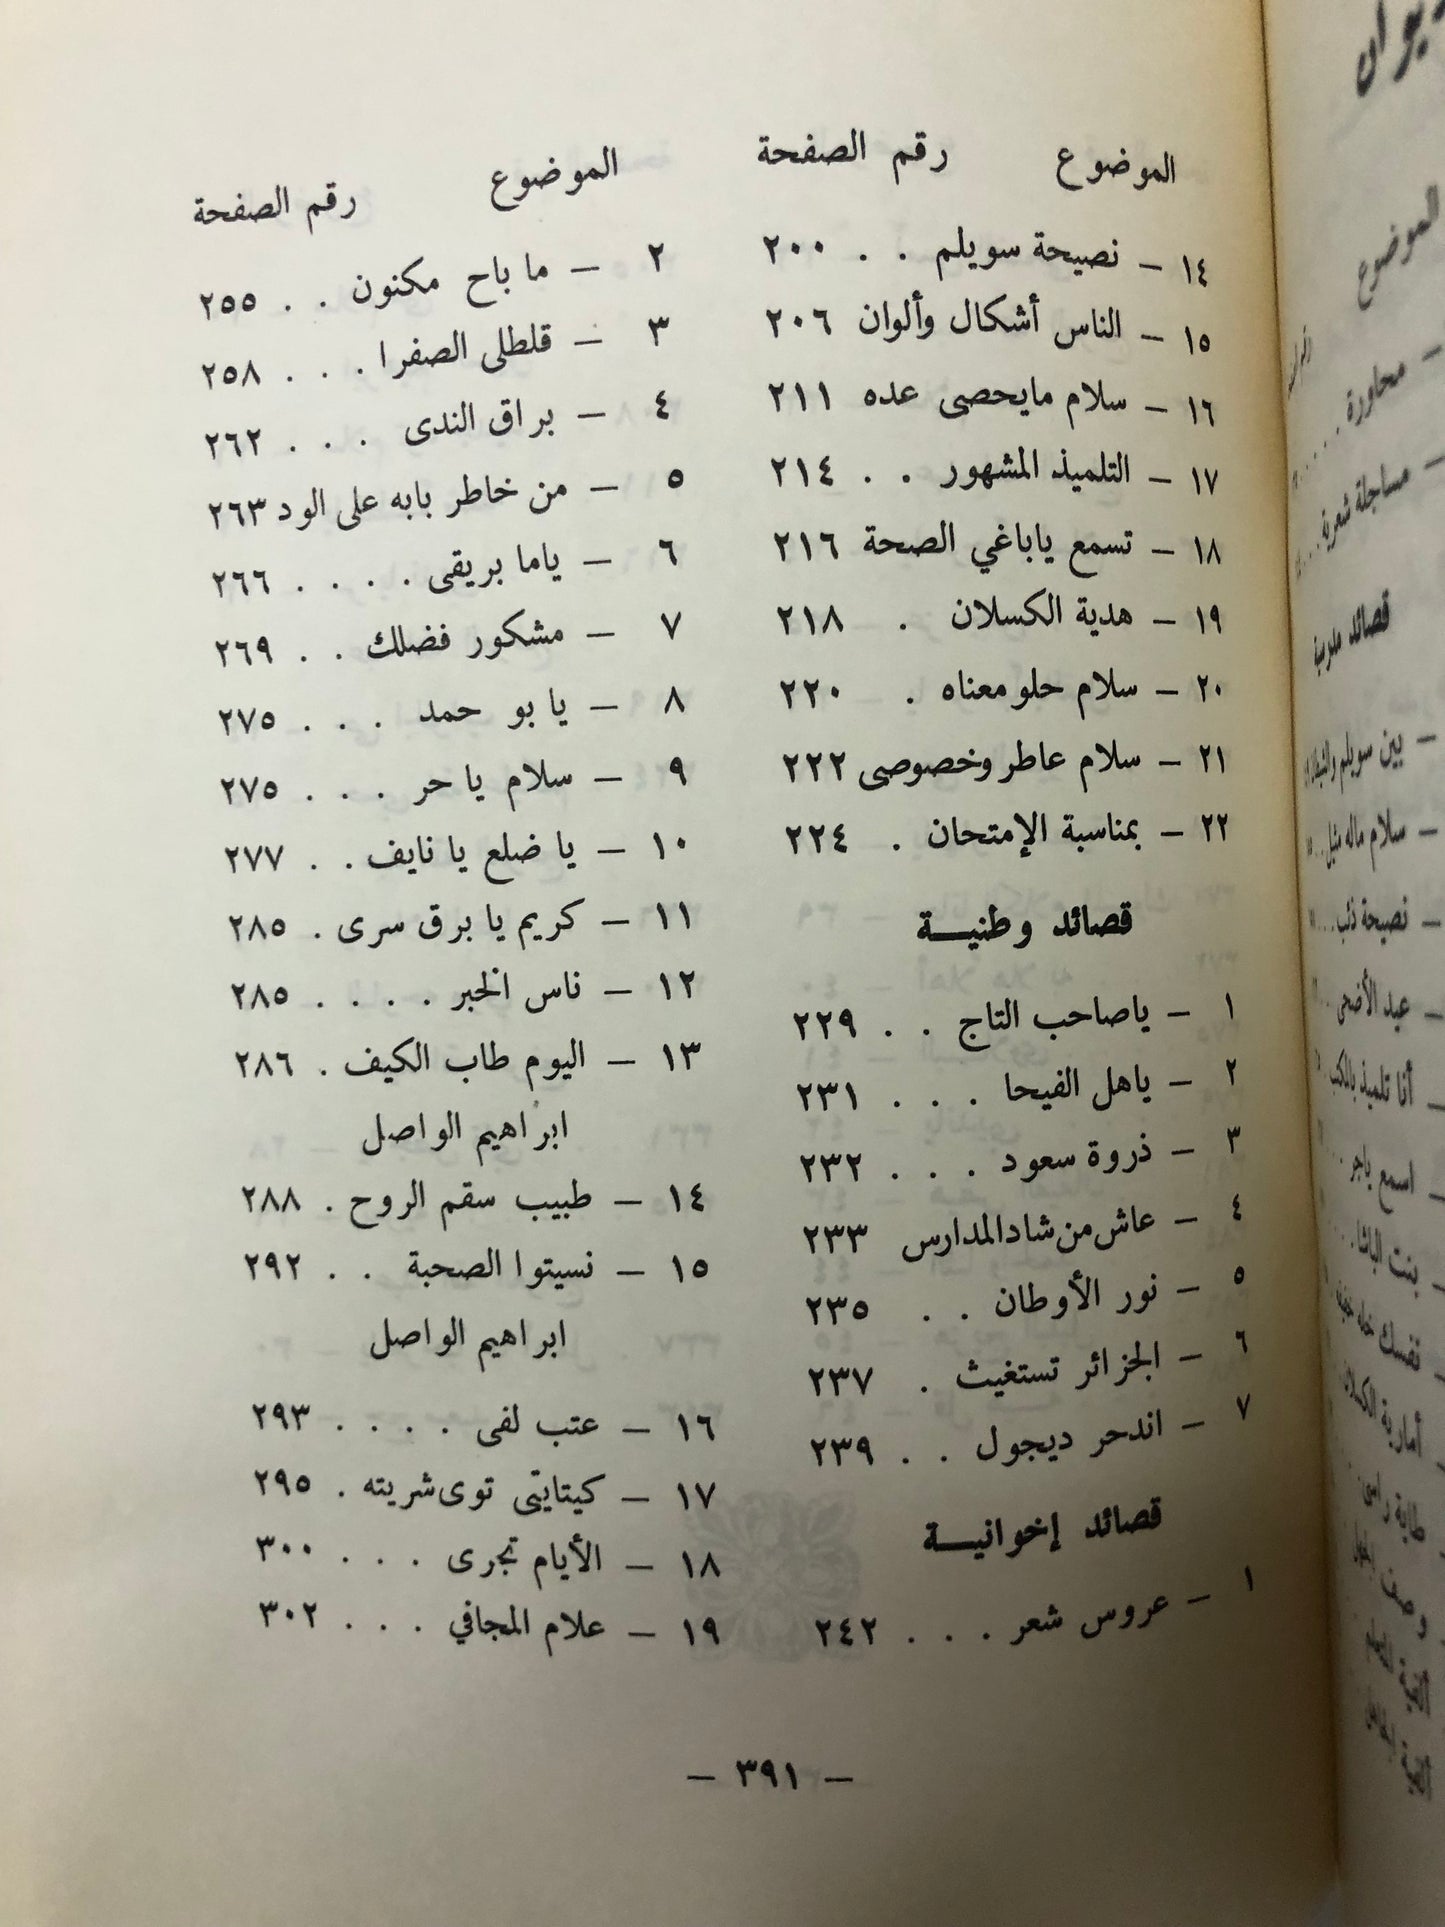 الموضوع رقم الصفحة
١٤ – نصيحة سويلم . . ٢٠٠
١٥ – الناس أشكال وألوان ٢٠٦
١٦ – سلام مايحصى عده ٢١١
١٧ – التلميذ المشهور . . ٢١٤
١٨ – تسمع ياباغي الصحة ٢١٦
١٩ – هدية الكسلان . ٢١٨
٢٠ – سلام حلو معناه . ٢٢٠
٢١ – سلام عاطر وخصوصى ٢٢٢
٢٢ – بمناسبة الإمتحان . ٢٢٤
قصائد وطنيــة
١ – ياصاحب التاج . . ٢٢٩
٢ – ياهل الفيحا . . . ٢٣١
٣ – ذروة سعود . . . ٢٣٢
٤ – عاش من شاد المدارس ٢٣٣
٥ – نور الأوطان . . ٢٣٥
٦ – الجزائر تستغيث . ٢٣٧
٧ – اندحر ديجول . . ٢٣٩
قصائد إخوانيــة
١ – عروس شعر . . . ٢٤٢
الموضوع رقم الصفحة
٢ – ما باح مكنون . . ٢٥٥
٣ – قلطلى الصفرا . . . ٢٥٨
٤ – براق الندى . . . ٢٦٢
٥ – من خاطر بابه على الود ٢٦٣
٦ – ياما بريقى . . . . ٢٦٦
٧ – مشكور فضلك . . ٢٦٩
٨ – يا بو حمد . . . ٢٧٥
٩ – سلام يا حر . . . ٢٧٥
١٠ – يا ضلع يا نايف . . ٢٧٧
١١ – كريم يا برق سرى . ٢٨٥
١٢ – ناس الخبر . . . . ٢٨٥
١٣ – اليوم طاب الكيف . ٢٨٦
ابراهيم الواصل
١٤ – طبيب سقم الروح . ٢٨٨
١٥ – نسيتوا الصحبة . . ٢٩٢
ابراهيم الواصل
١٦ – عتب لفى . . . . ٢٩٣
١٧ – كيتايتى توى شريته . ٢٩٥
١٨ – الأيام تجرى . . . ٣٠٠
١٩ – علام المجافي . . . ٣٠٢
– ٣٩١ –
الموضوع
– محاورة
– مساجلة شعرية
– بين سويلم
– سلام ماله مثيل
– نصيحة ذئب
– عيد الأضحى
– أنا تلميذ بالمكتب
– اسمع ياجر
– بنت الباشا